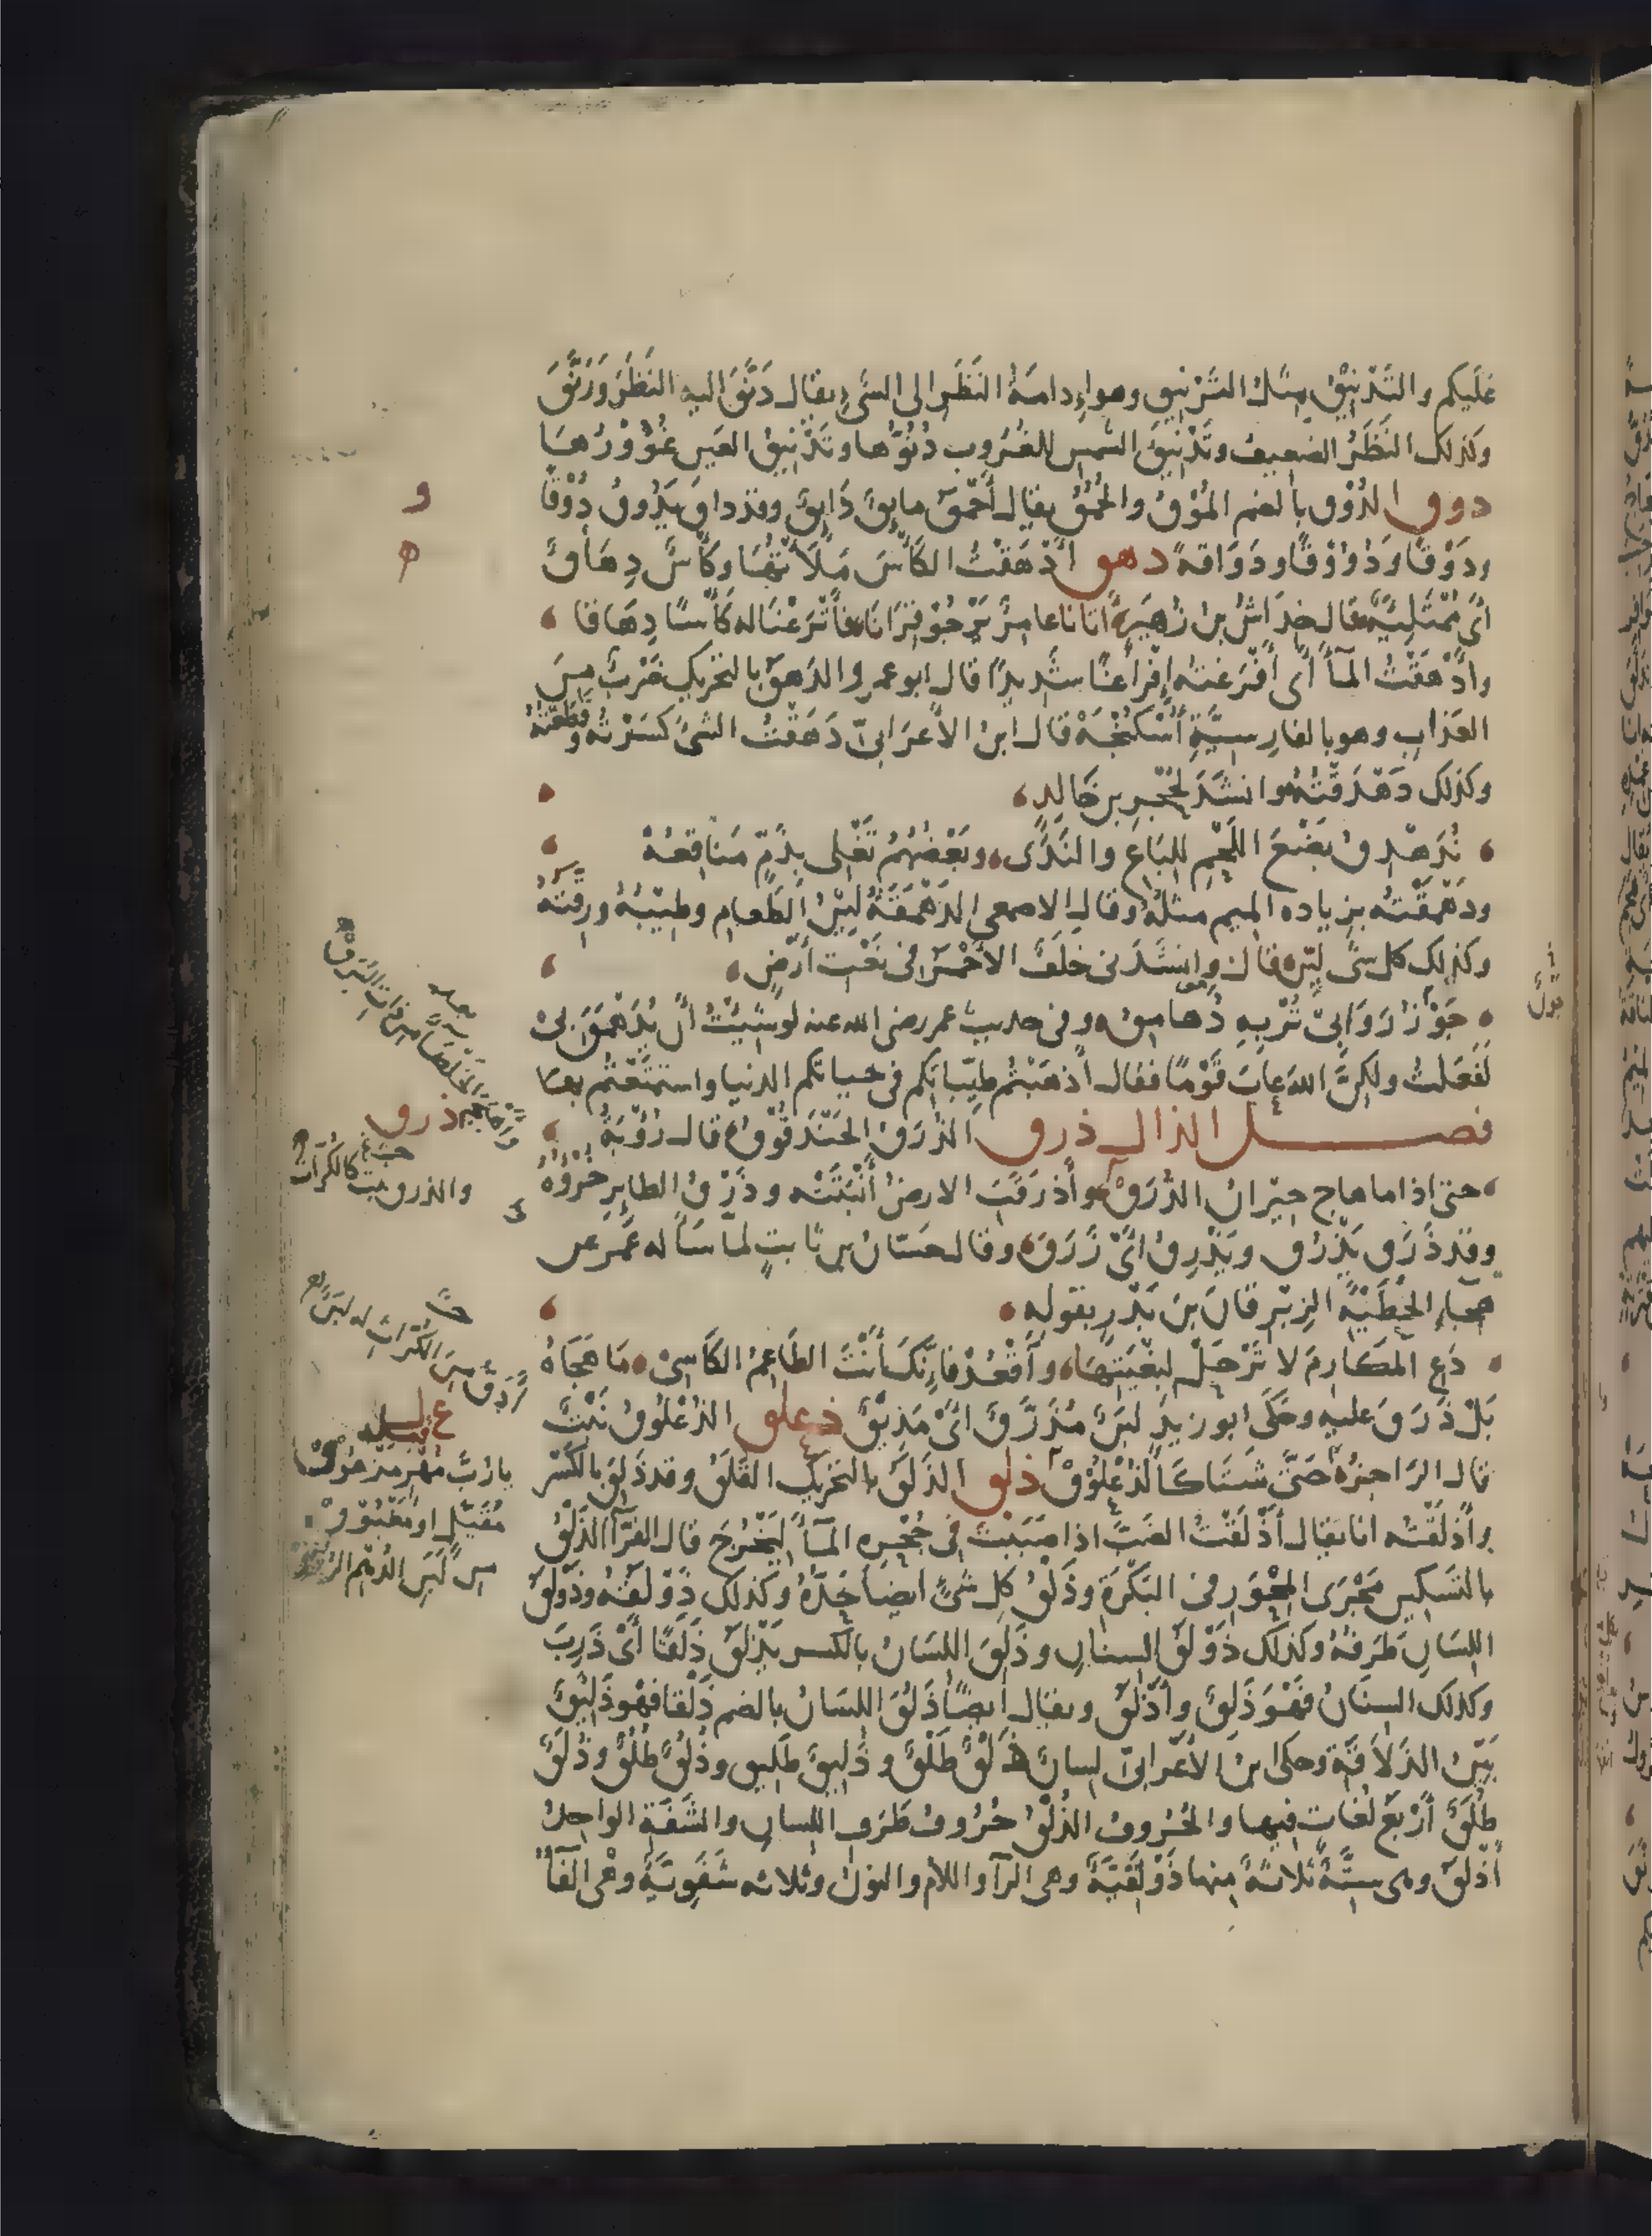 عَلَيكم والتَّدْنِيْقُ مِثْلُ التَّرْنِيقِ وهو إِدامَةُ النَّظَرِ الى الشَّىءِ يقال دَنَّقَ اليه النَظَرَ ورَنَّقَ
وكذلك النَّظَرُ الضعيف وتَدْنِيقُ الشمسِ للغُرُوبِ دُنُوُّها وتَدْنِيقُ العَينِ غُؤُوْرُها
دوق الدُوْقُ بالضم المُوْقُ والحُمْقُ يقال أَحْمَقُ مايِقٌ دَايِقٌ وقد داقَ يَدُوقُ دُوْقًا
ودَوْقًا ودُوُوْقًا ودَوَاقةً دهق أَدْهَقْتُ الكَأْسَ مَلَأْتُها وكأْسٌ دِهَاقٌ
أَى مُمْتَلِئَةٌ قال خِدَاشُ بن زُهَيرٍ أَتانا عامِرٌ يَرْجُوْ قِرَانَا فأَتْرَعْنَا له كَأْسًا دِهَاقا
وأَدْهَقْتُ المآءَ أى أَفْرَغتُه إِفْرَاغًا شَديدًا قال ابو عمرو الدَهَقُ بالتحريكِ ضَرْبٌ مِنَ
العَذابِ وهو بالفارِسِيَّةِ أَشْكَنْجَهْ قال ابنُ الأَعرَابىّ دَهَقْتُ الشىءَ كسَرْتُه وقَطَعْتُهُ
وكذلك دَهْدَقْتُهُ وانشَدَ لحُجْرِ بنِ خَالِدٍ
نُدَهْدِقُ بَضْعَ اللَّحْمِ للبَاعِ والنَدَى وبَعْضُهُمْ تَغْلِى بِذَمٍّ مَنَاقِعُهْ
ودَهْمَقْتُه بزياده الميم مثلُهُ وقال الاصمعى الدَهْمَقَةُ لِيْنُ الطَعامِ وطِيْبُهُ ورِقَّتُهُ
وكذلك كل شىء ليّن قال وانشَدَنى خلَفٌ الأَحْمَرُ فى نَعْتِ أَرْضٍ
جَوْنٌ رَوَابِىْ تُرْبِهِ دُهامِقُ وفى حديث عمر رضى الله عنه لو شِيْتُ أَن يُدَهْمَقَ لىْ
لَفَعَلتُ ولكِنَّ اللهَ عابَ قَوْمًا فقال أَذْهَبْتُم طيِّباتكم فى حياتكم الدنيا واستمتَعْتُم بها
فصل الذال ذرق الذُرَقُ الحَنْدَقُوْقُ قال رُؤْبَةُ
حتى اذا ما هاج حِيْرانُ الذُّرَقْ وأَذرَقَتِ الارضُ أَنْبَتَتْه وذَرْقُ الطايِرِ خُرْؤُهُ
وقد ذَرَقَ يَذْرُقُ ويَذْرِقُ اىْ زَرَقَ وقال حسّانُ بن ثابتٍ لمآ سَأَله عُمَرُ عن
هجآءِ الحُطَيْئَةِ الزِبْرِقانَ بنَ بَدْرٍ بقوله
دَعِ المَكارِمَ لا تَرْحَلْ لبِغْيَتِهَا وَأَقْعُدْ فإِنَّكَ أَنْتَ الطَاعِمُ الكَاسِىْ مَا هَجَاهُ
بَلْ ذَرَقَ عليه وحَكَى ابو زيدٍ لبَنٌ مُذَرَّقٌ اىْ مَذِيْقٌ ذعلق الذُعْلُوقُ نَبْتٌ
قال الرَاجزُ حَتَّى شَتَا كَالذُعْلُوْقْ ذلق الذَلَقُ بالتحريكِ القَلَقُ وقد ذَلِقَ بالكَسْر
وأَذلَقْتُه انا يقال أَذْلَقْتُ الضَبَّ اذا صَبَبْتَ فى جُحْرِهِ المآءَ ليَخْرُجَ قال الفرّآءُ الذَلْقُ
بالتسكينِ مَجْرَى المِحْوَرِ فى البَكْرَةِ وذَلْقُ كل شىءٍ ايضًا حَدُّهُ وكذلك ذَوْلَقُهُ وذَوْلَقُ
اللسَانِ طَرَفُهُ وكذلك ذَوْلَقُ السِنانِ وذَلِقَ اللسَانُ بالكسر يَذْلَقُ ذَلَقًا أَىْ ذَرِبَ
وكذلك السِنَانُ فَهْوَ ذَلِقٌ وأَذْلَقُ ويقال ايضًا ذَلُقَ اللسَانُ بالضم ذَلْقا فهْو ذَلِيْقٌ
بَيّنُ الذَلَاقَةِ وحكى ابنُ الأَعْرَابىّ لسانٌ ذَلْقٌ طَلْقٌ وذَلِيقٌ طَلِيق وذُلُقٌ طُلُقٌ وذُلَقٌ
طُلَقٌ أَرْبَعُ لُغاتٍ فيها والحُرُوفُ الذُلْقُ حُرُوفُ طَرَفِ اللسانِ والشَفَةِ الواحِدُ
أَذْلَقُ وهى سِتَّةٌ ثَلاثةٌ منها ذَوْلَقِيَّةٌ وهى الرآ واللام والنون وثلاثه شَفَوِيَّةٌ وهْى الفآءُ
و
ه
ذرق
والذرق نبت كالكُرّاث
يارُبَّ مُهْرٍ مَزْعُوقْ
مُقَيَّلٍ او مَغْبُوْقْ
من لَبَنِ الدُهْمِ الرُوْقْ